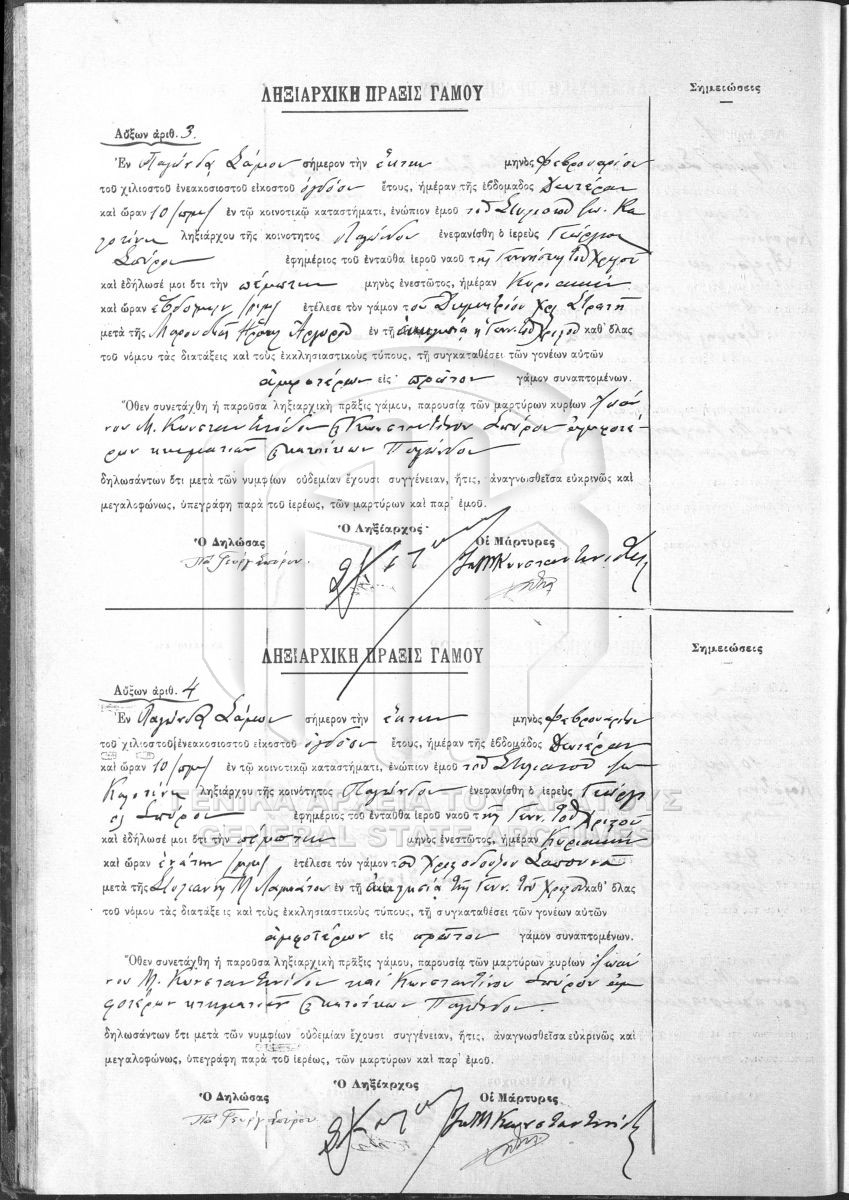 ΛΗΞΙΑΡΧΙΚΗ ΠΡΑΞΙΣ ΓΑΜΟΥ
Σημειώσεις
Αὔξων ἀριθ. 3.
Ἐν Παγώνδᾳ Σάμου σήμερον τὴν ἕκτην μηνὸς Φεβρουαρίου
τοῦ χιλιοστοῦ ἐνεακοσιοστοῦ εἰκοστοῦ ὀγδόου ἔτους, ἡμέραν τῆς ἑβδομάδος Δευτέραν
καὶ ὥραν 10 π.μ. ἐν τῷ κοινοτικῷ καταστήματι, ἐνώπιον ἐμοῦ τοῦ Στυλιανοῦ
ληξιάρχου τῆς κοινότητος Παγώνδου ἐνεφανίσθη ὁ ἱερεὺς Γεώργιος
Σπύρου ἐφημέριος τοῦ ἐνταῦθα ἱεροῦ ναοῦ τῆς Γεννήσεως τοῦ Χριστοῦ
καὶ ἐδήλωσέ μοι ὅτι τὴν πέμπτην μηνὸς ἐνεστῶτος, ἡμέραν Κυριακὴν
καὶ ὥραν ἑβδόμην μ.μ. ἐτέλεσε τὸν γάμον τοῦ Δημητρίου Χρ. Στρατῆ
μετὰ τῆς Μαρουδιᾶς Ἀργυροῦ ἐν τῇ ἐκκλησίᾳ Γενν. τοῦ Χριστοῦ καθ᾽ ὅλας
τοῦ νόμου τὰς διατάξεις καὶ τοὺς ἐκκλησιαστικοὺς τύπους, τῇ συγκαταθέσει τῶν γονέων αὐτῶν
ἀμφοτέρων εἰς πρῶτον γάμον συναπτομένων.
Ὅθεν συνετάχθη ἡ παροῦσα ληξιαρχικὴ πρᾶξις γάμου, παρουσίᾳ τῶν μαρτύρων κυρίων Ἰωάν
νου Μ. Κωνσταντινίδου & Κωνσταντίνου Σπύρου ἀμφοτέ
ρων κτηματιῶν & κατοίκων Παγώνδου
δηλωσάντων ὅτι μετὰ τῶν νυμφίων οὐδεμίαν ἔχουσι συγγένειαν, ἥτις, ἀναγνωσθεῖσα εὐκρινῶς καὶ
μεγαλοφώνως, ὑπεγράφη παρὰ τοῦ ἱερέως, τῶν μαρτύρων καὶ παρ᾽ ἐμοῦ.
Ὁ Δηλώσας
Ὁ Ληξίαρχος
Οἱ Μάρτυρες
Πα Γεώργ Σπύρου
Ἰω Μ Κωνσταντινίδης
ΛΗΞΙΑΡΧΙΚΗ ΠΡΑΞΙΣ ΓΑΜΟΥ
Σημειώσεις
Αὔξων ἀριθ. 4
Ἐν Παγώνδᾳ Σάμου σήμερον τὴν ἕκτην μηνὸς Φεβρουαρίου
τοῦ χιλιοστοῦ ἐνεακοσιοστοῦ εἰκοστοῦ ὀγδόου ἔτους, ἡμέραν τῆς ἑβδομάδος Δευτέραν
καὶ ὥραν 10 π.μ. ἐν τῷ κοινοτικῷ καταστήματι, ἐνώπιον ἐμοῦ τοῦ Στυλιανοῦ Ἰω
ληξιάρχου τῆς κοινότητος Παγώνδου ἐνεφανίσθη ὁ ἱερεὺς Γεώργι
ος Σπύρου ἐφημέριος τοῦ ἐνταῦθα ἱεροῦ ναοῦ τῆς Γενν. τοῦ Χριστοῦ
καὶ ἐδήλωσέ μοι ὅτι τὴν πέμπτην μηνὸς ἐνεστῶτος, ἡμέραν Κυριακὴν
καὶ ὥραν ἐνάτην μ.μ. ἐτέλεσε τὸν γάμον τοῦ Χριστοδούλου Σαπουνᾶ
μετὰ τῆς Στυλιανῆς Μ. ἐν τῇ ἐκκλησίᾳ τῆς Γενν. τοῦ Χριστοῦ καθ᾽ ὅλας
τοῦ νόμου τὰς διατάξεις καὶ τοὺς ἐκκλησιαστικοὺς τύπους, τῇ συγκαταθέσει τῶν γονέων αὐτῶν
ἀμφοτέρων εἰς πρῶτον γάμον συναπτομένων.
Ὅθεν συνετάχθη ἡ παροῦσα ληξιαρχικὴ πρᾶξις γάμου, παρουσίᾳ τῶν μαρτύρων κυρίων Ἰωάν
νου Μ. Κωνσταντινίδου καὶ Κωνσταντίνου Σπύρου ἀμ
φοτέρων κτηματιῶν & κατοίκων Παγώνδου.
δηλωσάντων ὅτι μετὰ τῶν νυμφίων οὐδεμίαν ἔχουσι συγγένειαν, ἥτις, ἀναγνωσθεῖσα εὐκρινῶς καὶ
μεγαλοφώνως, ὑπεγράφη παρὰ τοῦ ἱερέως, τῶν μαρτύρων καὶ παρ᾽ ἐμοῦ.
Ὁ Δηλώσας
Ὁ Ληξίαρχος
Οἱ Μάρτυρες
Πα Γεώργ Σπύρου
Ἰω Μ Κωνσταντινίδης
ΓΕΝΙΚΑ ΑΡΧΕΙΑ ΤΟΥ ΚΡΑΤΟΥΣ
GENERAL STATE ARCHIVES